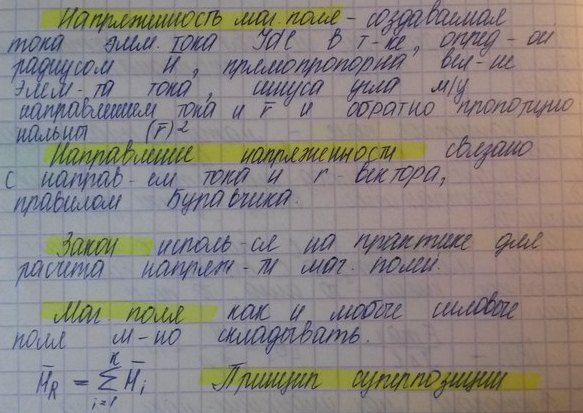 Напряженность маг. поля - создаваемая
тока элем. тока Idl в т-ке, опред-ой
радиусом и, прямопропорна вел-не
элем-та тока, синуса угла м/у
направлением тока и r̅ и обратно пропорцио
нальны (r̅)²
Направление напряженности связано
с направ-ем тока и r - вектора,
правилом Буравчика.
Закон исполь-ся на практике для
расчета напряж-ти маг. полей.
Маг. поля как и любые силовые
поля м-но складывать.
H̅R = ∑ H̅i
n
i=1
Принцип суперпозиции